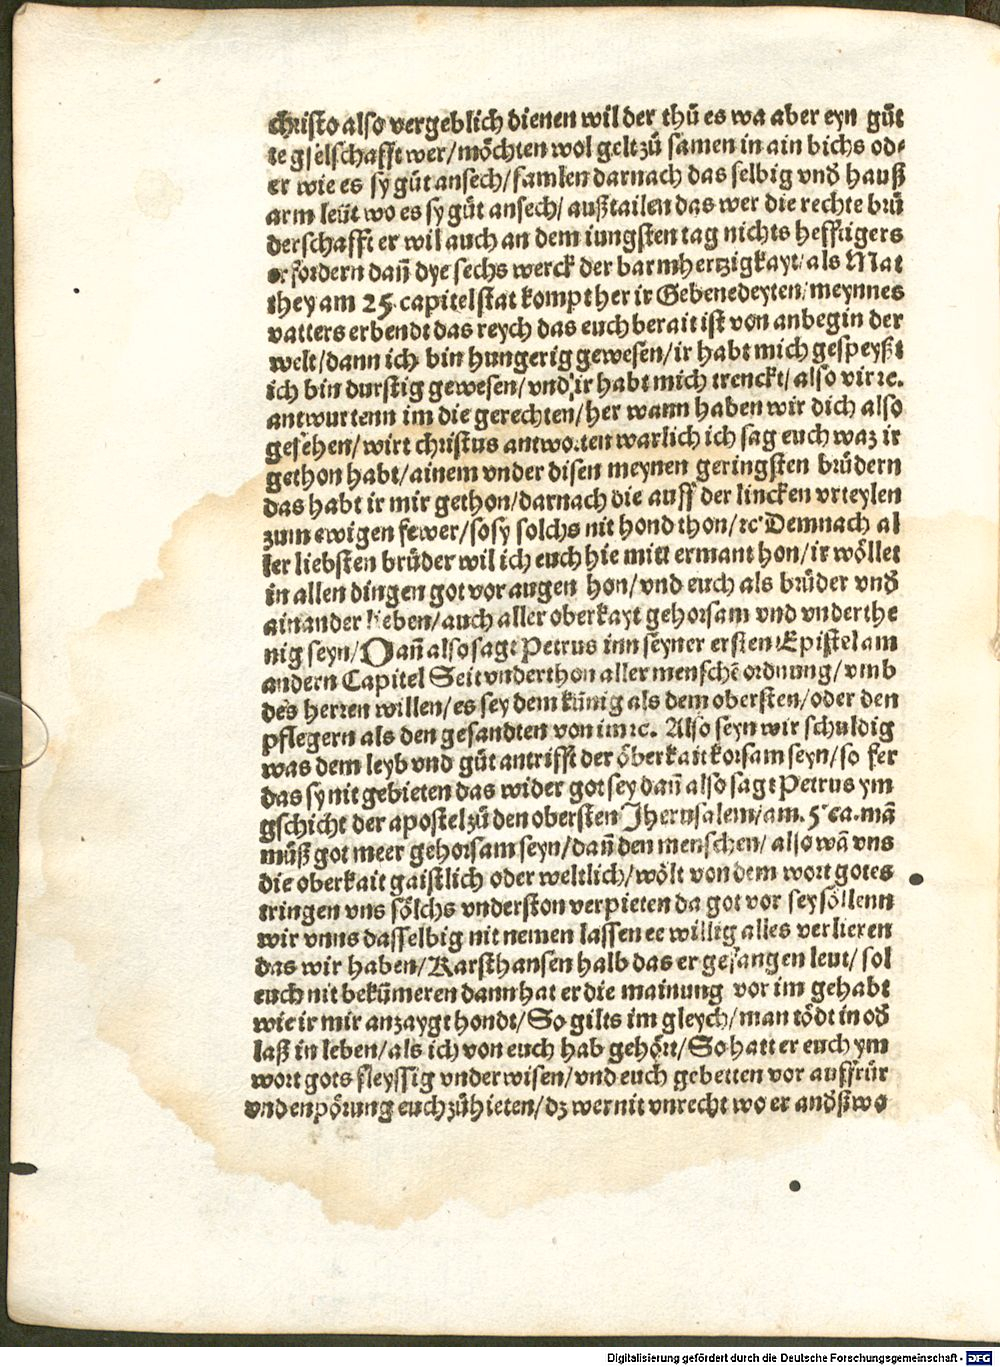 christo also vergeblich dienen wil der thů es wa aber eyn gůt
te gselschafft wer/möchten wol gelt zů samen in ain bichs od-
er wie es sy gůt ansech/samlen darnach das selbig vnd̕ hauß
arm leüt wo es sy gůt ansech/ außtailen das wer die rechte brů
derschafft er wil auch an dem iungsten tag nichts hefftigers
erfordern dañ dye sechs werck der barmhertzigkayt/als Mat
they am 25. capitel stat kompt her ir Gebenedeyten/meynnes
vatters erbendt das reych das euch berait ist von anbegin der
welt/dann ich bin hungerig gewesen/ir habt mich gespeyßt
ich bin durstig gewesen/vnd ir habt mich trenckt/also vir ꝛc.
antwurtenn im die gerechten/her wann haben wir dich also
gesehen/wirt christus antworten warlich ich sag euch waz ir
gethon habt/ainem vnder disen meynen geringsten brůdern
das habt ir mir gethon/darnach die auff der lincken vrteylen
zum ewigen fewer/so sy solchs nit hond thon/ꝛc Demnach al
ler liebsten brůder wil ich euch hie mitt ermant hon/ir wöllet
in allen dingen got vor augen hon/vnd euch als brůder vnd̕
ainander lieben/auch aller oberkayt gehorsam vnd vnderthe
nig seyn/Dañ also sagt Petrus inn seyner ersten Epistel am
andern Capitel Seit vnderthon aller menschē ordnung/vmb
des herren willen/es sey dem künig als dem obersten/oder den
pflegern als den gesandten von im ꝛc. Also seyn wir schuldig
was dem leyb vnd gůt antrifft der öberkait korsam seyn/so fer
das sy nit gebieten das wider got sey dañ also sagt Petrus ym
gschicht der apostel zů den obersten Jherusalem/am. 5 ca. mā
můß got meer gehorsam seyn/dañ den menschen/ also wā vns
die oberkait gaistlich oder weltlich/wölt von dem wort gotes
tringen vns sölchs vnderston verpieten da got vor sey söllenn
wir vnns dasselbig nit nemen lassen ee willig alles verlieren
das wir haben/Karsthansen halb das er gefangen leut/ sol
euch nit bekümeren dann hat er die mainung vor im gehabt
wie ir mir anzaygt hondt/So gilts im gleych/man tödt in od̕
laß in leben/als ich von euch hab gehört/So hatt er euch ym
wort gots fleyssig vnderwisen/vnd euch gebetten vor auffrůr
vnd enpörung euch zů hieten/dz wer nit vnrecht wo er and̕ßwo
Digitalisierung gefördert durch die Deutsche Forschungsgemeinschaft - DFG